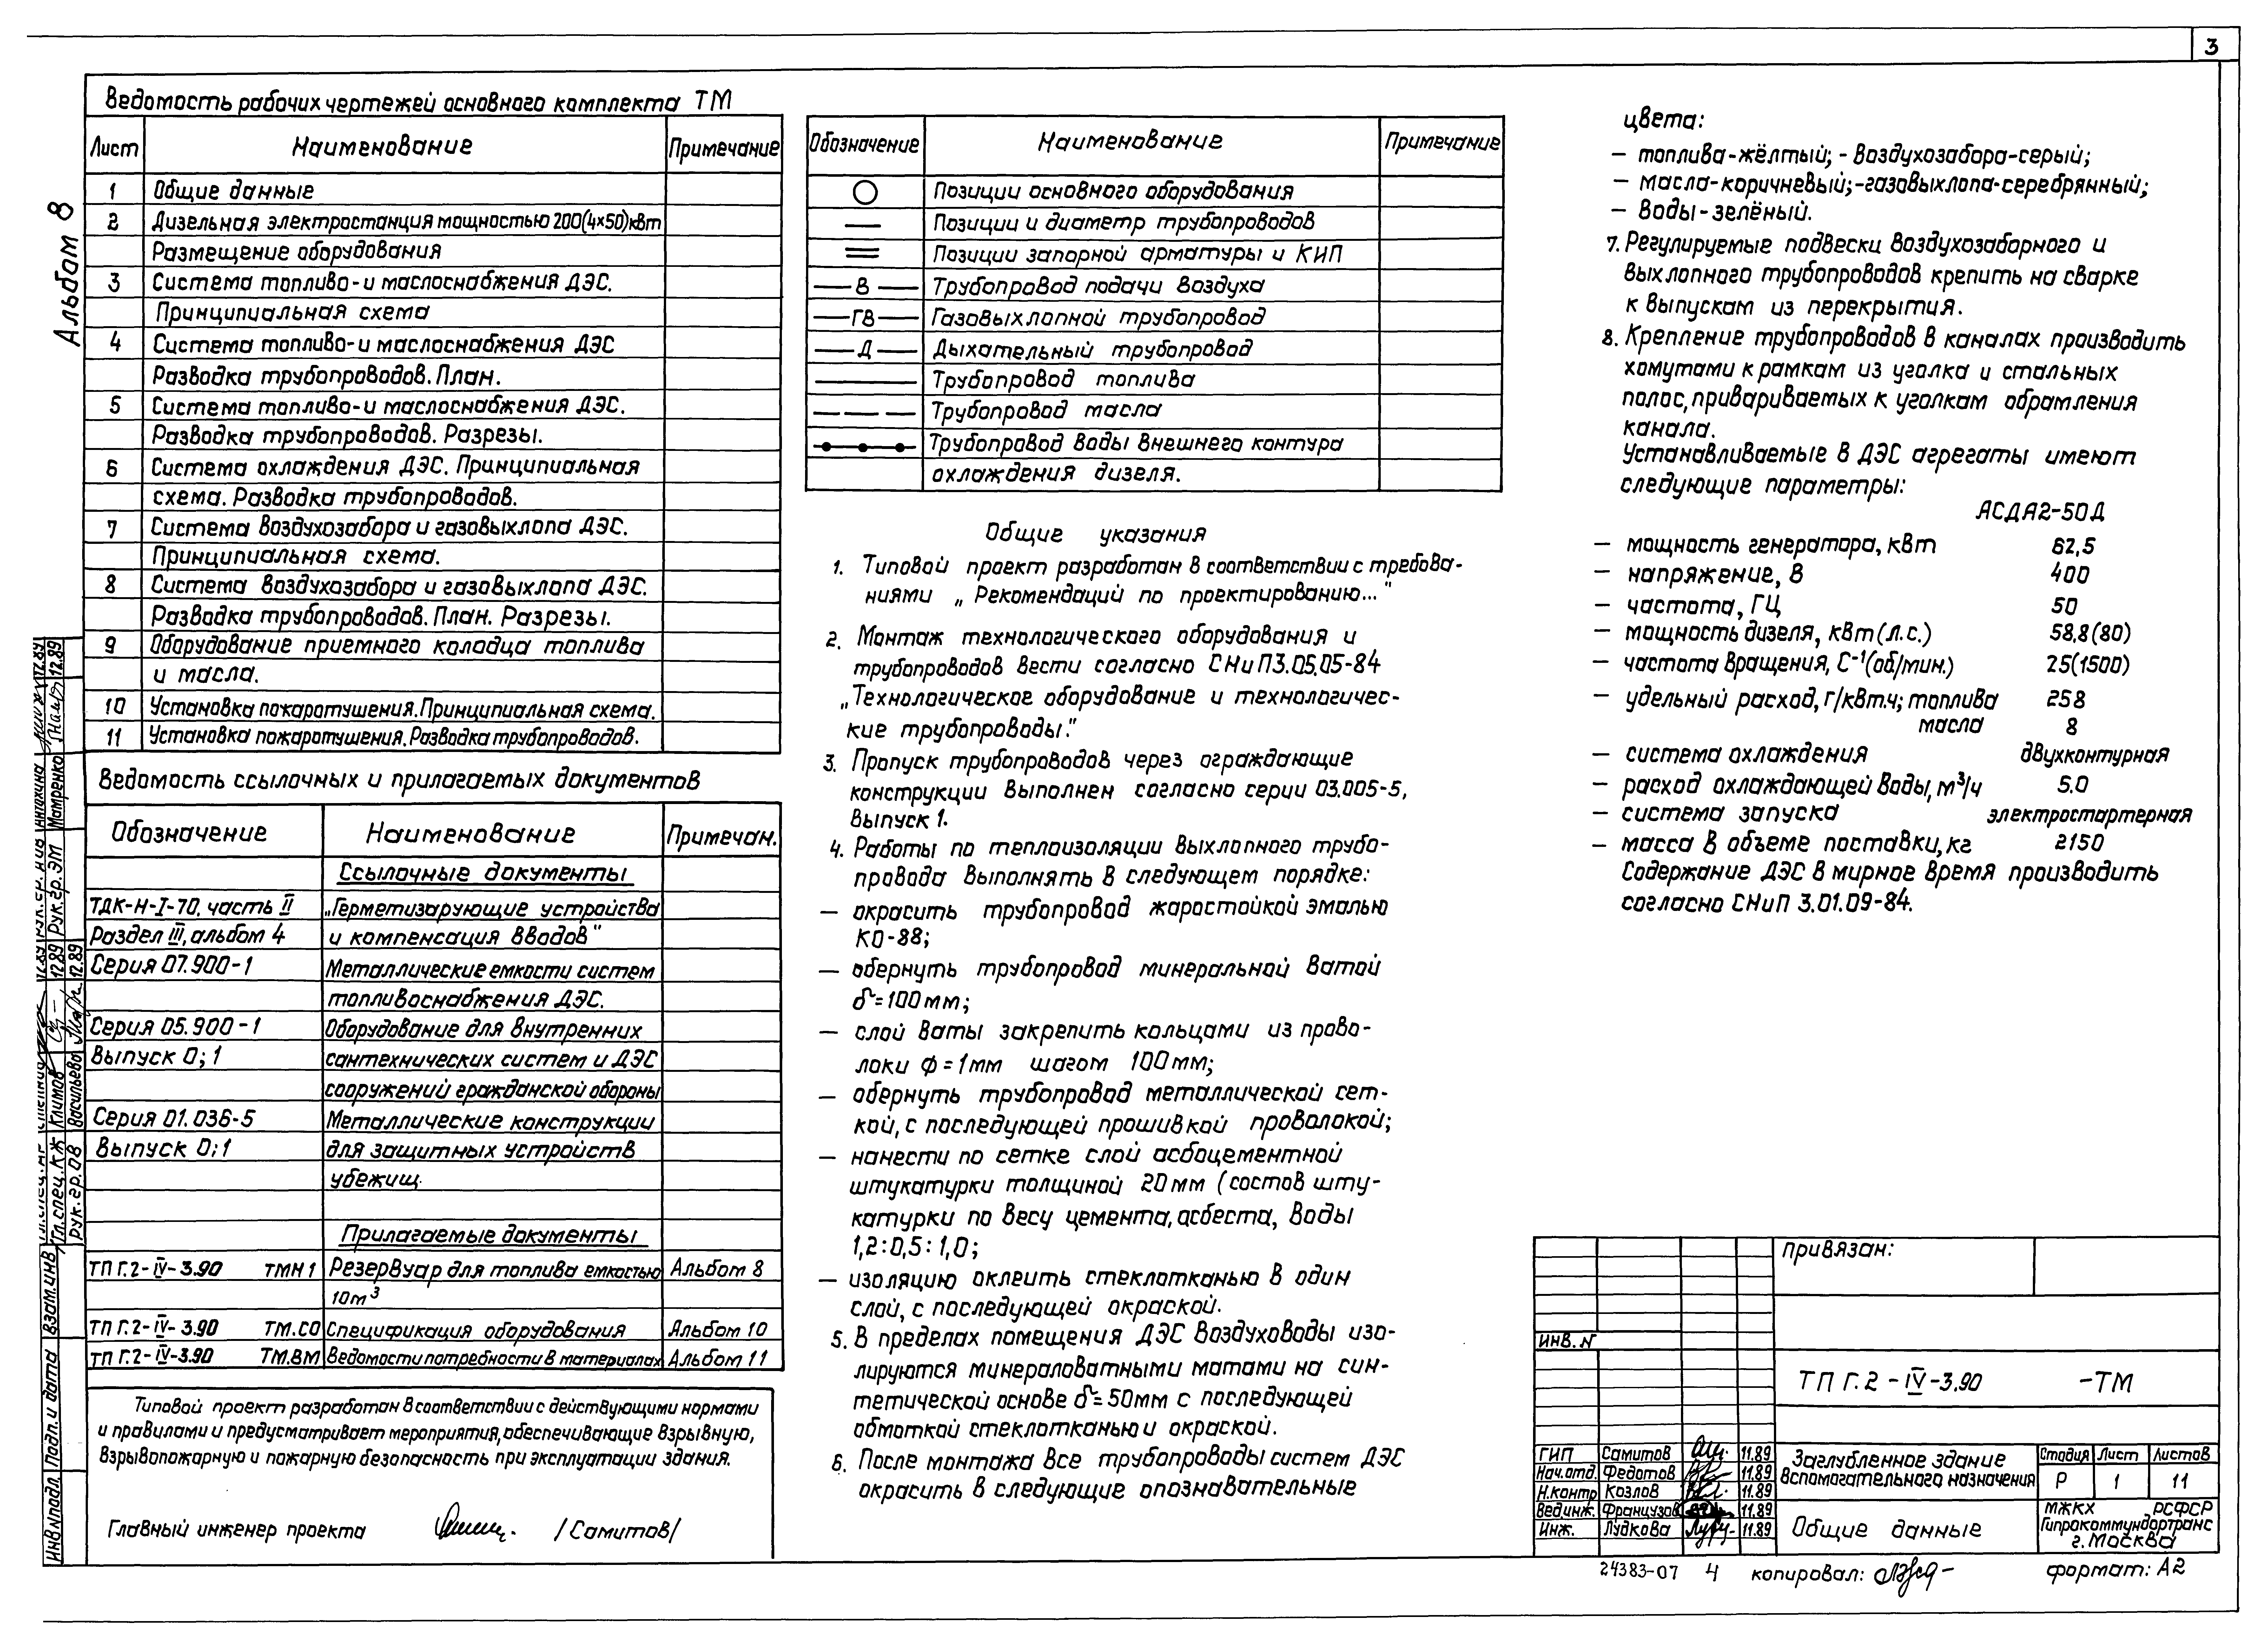 3
Альбом 8
Ведомость рабочих чертежей основного комплекта ТМ
Лист Наименование Примечание
1 Общие данные
2 Дизельная электростанция мощностью 200(4×50)кВт
Размещение оборудования
3 Система топливо-и маслоснабжения ДЭС.
Принципиальная схема
4 Система топливо-и маслоснабжения ДЭС
Разводка трубопроводов. План.
5 Система топливо-и маслоснабжения ДЭС.
Разводка трубопроводов. Разрезы.
6 Система охлаждения ДЭС. Принципиальная
схема. Разводка трубопроводов.
7 Система воздухозабора и газовыхлопа ДЭС.
Принципиальная схема.
8 Система воздухозабора и газовыхлопа ДЭС.
Разводка трубопроводов. План. Разрезы.
9 Оборудование приемного колодца топлива
и масла.
10 Установка пожаротушения. Принципиальная схема.
11 Установка пожаротушения. Разводка трубопроводов.
Ведомость ссылочных и прилагаемых документов
Обозначение Наименование Примечан.
Ссылочные документы
ТДК-Н-I-70, часть II „Герметизирующие устройства
Раздел III, альбом 4 и компенсация вводов"
Серия 07.900-1 Металлические емкости систем
топливоснабжения ДЭС.
Серия 05.900-1 Оборудование для внутренних
Выпуск 0; 1 сантехнических систем и ДЭС
сооружений гражданской обороны
Серия 01.036-5 Металлические конструкции
Выпуск 0; 1 для защитных устройств
убежищ.
Прилагаемые документы
ТП Г.2-IV-3.90 ТМН1 Резервуар для топлива емкостью Альбом 8
10м³
ТП Г.2-IV-3.90 ТМ.СО Спецификация оборудования Альбом 10
ТП Г.2-IV-3.90 ТМ.ВМ Ведомости потребности в материалах Альбом 11
Типовой проект разработан в соответствии с действующими нормами
и правилами и предусматривает мероприятия, обеспечивающие взрывную,
взрывопожарную и пожарную безопасность при эксплуатации здания.
Главный инженер проекта /Самитов/
Обозначение Наименование Примечание
Позиции основного оборудования
Позиции и диаметр трубопроводов
Позиции запорной арматуры и КИП
В Трубопровод подачи воздуха
ГВ Газовыхлопной трубопровод
Д Дыхательный трубопровод
Трубопровод топлива
Трубопровод масла
Трубопровод воды внешнего контура
охлаждения дизеля.
Общие указания
1. Типовой проект разработан в соответствии с требова-
ниями „Рекомендаций по проектированию..."
2. Монтаж технологического оборудования и
трубопроводов вести согласно СНиП3.05.05-84
„Технологическое оборудование и технологичес-
кие трубопроводы."
3. Пропуск трубопроводов через ограждающие
конструкции выполнен согласно серии 03.005-5,
выпуск 1.
4. Работы по теплоизоляции выхлопного трубо-
провода выполнять в следующем порядке:
— окрасить трубопровод жаростойкой эмалью
КО-88;
— обернуть трубопровод минеральной ватой
δ=100мм;
— слой ваты закрепить кольцами из прово-
локи ф=1мм шагом 100мм;
— обернуть трубопровод металлической сет-
кой, с последующей прошивкой проволокой;
— нанести по сетке слой асбоцементной
штукатурки толщиной 20мм (состов шту-
катурки по весу цемента, асбеста, воды
1,2:0,5:1,0;
— изоляцию оклеить стеклотканью в один
слой, с последующей окраской.
5. В пределах помещения ДЭС воздуховоды изо-
лируются минераловатными матами на син-
тетической основе δ=50мм с последующей
обмоткой стеклотканью и окраской.
6. После монтажа все трубопроводы систем ДЭС
окрасить в следующие опознавательные
цвета:
— топлива-жёлтый; - воздухозабора-серый;
— масла-коричневый;-газовыхлопа-серебрянный;
— воды-зелёный.
7. Регулируемые подвески воздухозаборного и
выхлопного трубопроводов крепить на сварке
к выпускам из перекрытия.
8. Крепление трубопроводов в каналах производить
хомутами к рамкам из уголка и стальных
полос, привариваемых к уголкам обрамления
канала.
Устанавливаемые в ДЭС агрегаты имеют
следующие параметры:
АСДА2-50Д
— мощность генератора, кВт 62,5
— напряжение, В 400
— частота, ГЦ 50
— мощность дизеля, кВт (л.с.) 58,8(80)
— частота вращения, С⁻¹(об/мин.) 25(1500)
— удельный расход, г/кВт.ч; топлива 258
масла 8
— система охлаждения двухконтурная
— расход охлаждающей воды, м³/ч 5.0
— система запуска электростартерная
— масса в объеме поставки, кг 2150
Содержание ДЭС в мирное время производить
согласно СНиП 3.01.09-84.
Привязан:
Инв. N
ТП Г.2-IV-3.90 -ТМ
ГИП Самитов 11.89
Нач.отд. Федотов 11.89
Н.контр Козлов 11.89
Вед.инж. Французов 11.89
Инж. Лудкова 11.89
Заглубленное здание
вспомогательного назначения
Стадия Лист Листов
Р 1 11
Общие данные
МЖКХ РСФСР
Гипрокоммундортранс
г. Москва
24383-07 4 копировал: формат: А2
Рук.гр.ЭМ Мамренко 12.89
Гл.спец.КЖ Климов 12.89
Рук.гр.ОВ Васильева 12.89
Взам.инв
Подп. и дата
Инв.Nподл.